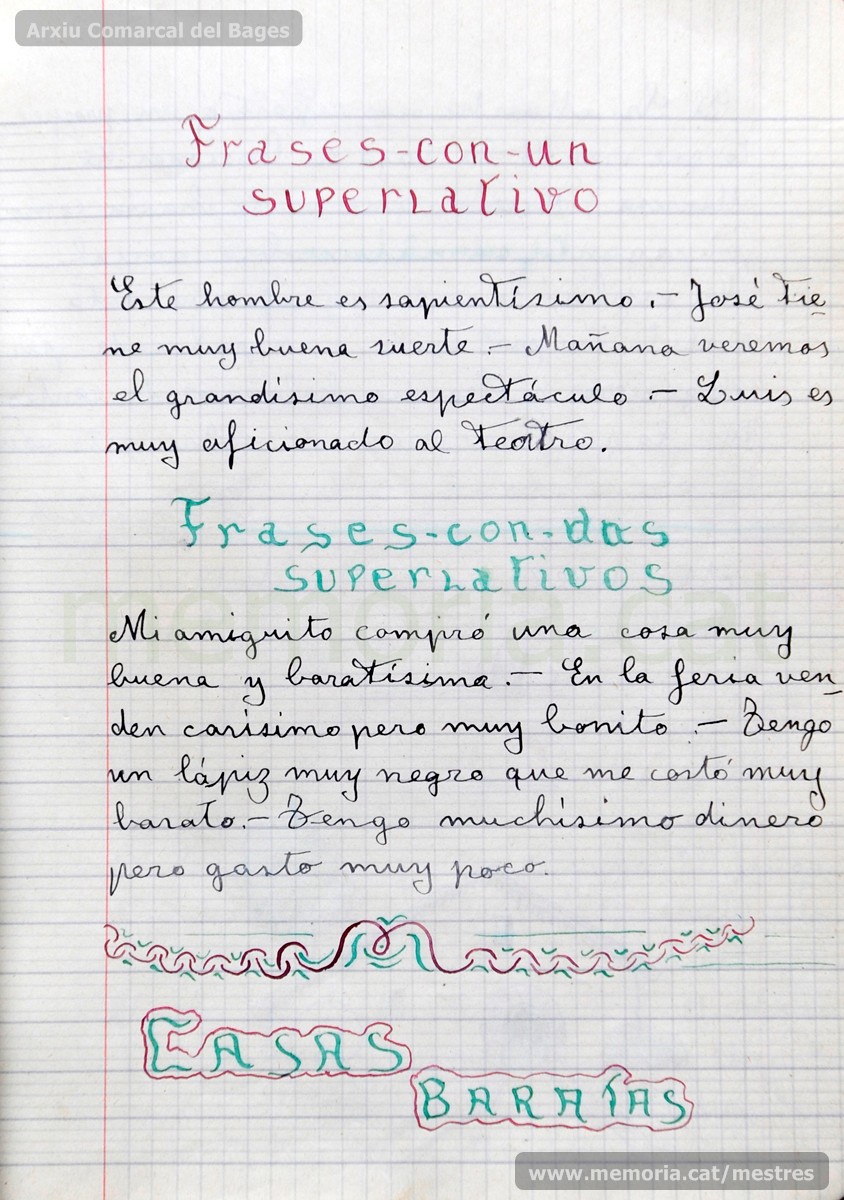 Arxiu Comarcal del Bages
Frases-con-un
superlativo
Este hombre es sapientísimo.- José tie-
ne muy buena suerte.- Mañana veremos
el grandísimo espectáculo.- Luis es
muy aficionado al teatro.
Frases-con-dos
superlativos
Mi amiguito compró una cosa muy
buena y baratísima.- En la feria ven-
den carísimo pero muy bonito.- Tengo
un lápiz muy negro que me costó muy
barato.- Tengo muchísimo dinero
pero gasto muy poco.
CASAS
BARATAS
memoria.cat
www.memoria.cat/mestres